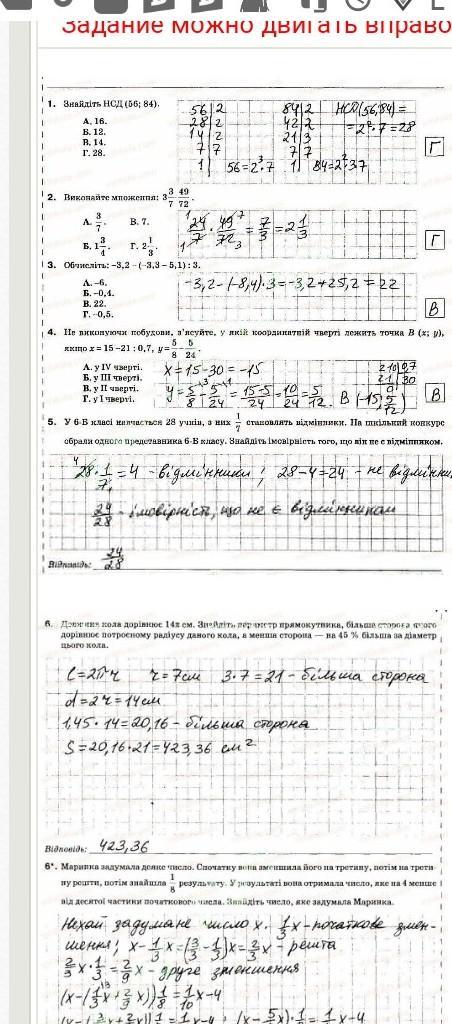 Задание можно двигать вправо
1. Знайдіть НСД (56; 84).
А. 16.
Б. 12.
В. 14.
Г. 28.
56|2 84|2 НСД(56,84)=
28|2 42|2 =2²·7=28
14|2 21|3
7|7 7|7
1| 56=2³·7 1| 84=2²·3·7
Г
2. Виконайте множення: 3 3/7 · 49/72.
А. 3/7. В. 7.
Б. 1 3/4. Г. 2 1/3.
24/7 · 49/72 = 7/3 = 2 1/3
Г
3. Обчисліть: –3,2 – (–3,3 – 5,1) : 3.
А. –6.
Б. –0,4.
В. 22.
Г. –0,5.
-3,2-(-8,4)·3=-3,2+25,2=22
В
4. Не виконуючи побудови, з'ясуйте, у якій координатній чверті лежить точка B (x; y),
якщо x = 15 – 21 : 0,7, y = 5/8 – 5/24.
А. у IV чверті.
Б. у III чверті.
В. у II чверті.
Г. у I чверті.
x=15-30=-15
y=5/8-5/24=15-5/24=10/24=5/12 B(-15;5/12)
В
5. У 6-Б класі навчається 28 учнів, з них 1/7 становлять відмінники. На шкільний конкурс
обрали одного представника 6-Б класу. Знайдіть імовірність того, що він не є відмінником.
28·1/7=4 - відмінники; 28-4=24 - не відмінни
24/28 - імовірність, що не є відмінником
Відповідь: 24/28
6. Довжина кола дорівнює 14π см. Знайдіть периметр прямокутника, більша сторона якого
дорівнює потроєному радіусу даного кола, а менша сторона — на 45 % більша за діаметр
цього кола.
C=2πr r=7см 3·7=21 - більша сторона
d=2r=14см
1,45·14=20,16 - більша сторона
S=20,16·21=423,36 см²
Відповідь: 423,36
6*. Маринка задумала деяке число. Спочатку вона зменшила його на третину, потім на трети-
ну решти, потім знайшла 1/8 результату. У результаті вона отримала число, яке на 4 менше
від десятої частини початкового числа. Знайдіть число, яке задумала Маринка.
Нехай задумане число x. 1/3x - початкове змен-
шення; x-1/3x=(3/3-1/3)x=2/3x - решта
2/3x·1/3=2/9x - друге зменшення
(x-(1/3x+2/9x))1/8=1/10x-4